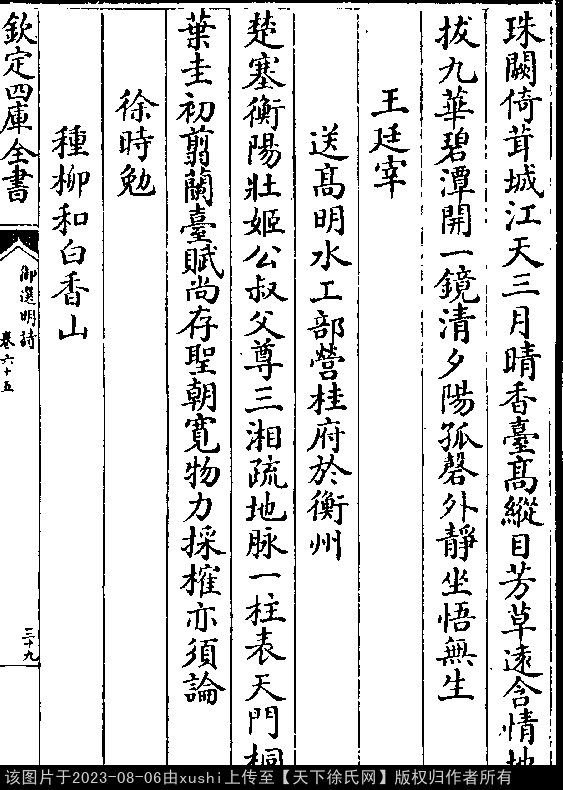 珠闕倚茸城江天三月晴香臺髙縱目芳草逺含情地
拔九華碧潭開一鏡清夕陽孤磬外靜坐悟無生
王廷宰
送髙明水工部營桂府於衡州
楚塞衡陽壯姬公叔父尊三湘疏地脉一柱表天門桐
葉圭初翦蘭臺賦尚存聖朝寛物力採榷亦須論
徐時勉
種柳和白香山
欽定四庫全書
御選明詩
卷六十五
三十九
该图片于2023-08-06由xushi上传至【天下徐氏网】版权归作者所有